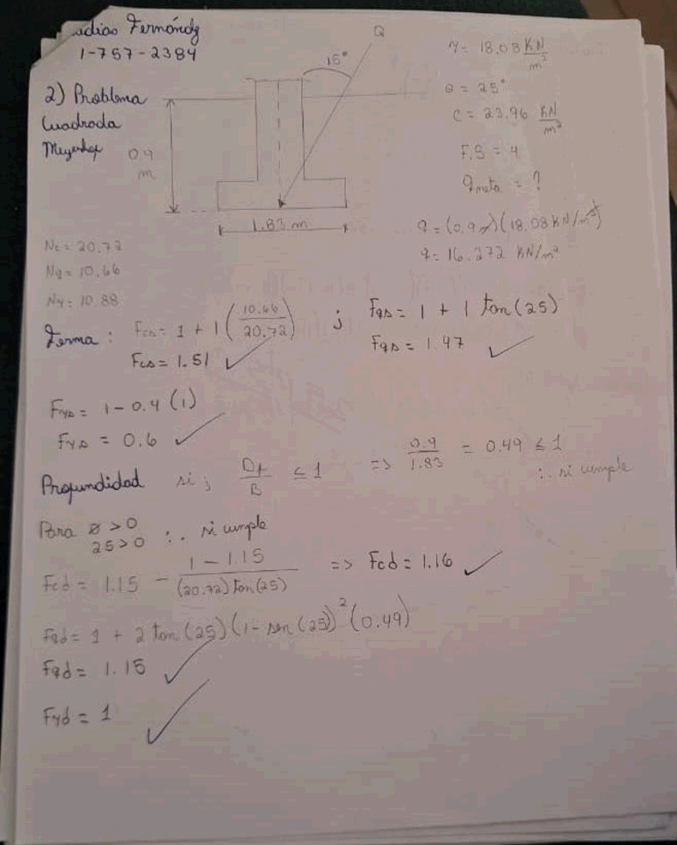 Fernández
1-757-2384
2) Problema
Cuadrada
Meyerhof
0.9
m
15°
Q
1.83 m
γ = 18.08 KN/m²
Ø = 25°
C = 23.96 KN/m²
F.S = 4
q = (0.9 m)(18.08 KN/m³)
q = 16.272 KN/m²
Nc = 20.72
Nq = 10.66
Nγ = 10.88
Forma : Fcs = 1 + 1 (10.66/20.72) ; Fqs = 1 + 1 tan(25)
Fcs = 1.51 ✓ Fqs = 1.47 ✓
Fγs = 1 - 0.4 (1)
Fγs = 0.6 ✓
Profundidad si ; Df/B ≤ 1 => 0.9/1.83 = 0.49 ≤ 1
∴ si cumple
Para Ø > 0
25 > 0 ∴ si cumple
Fcd = 1.15 - (1 - 1.15)/((20.72) tan(25)) => Fcd = 1.16 ✓
Fqd = 1 + 2 tan(25) (1 - sen(25))² (0.49)
Fqd = 1.15 ✓
Fγd = 1 ✓